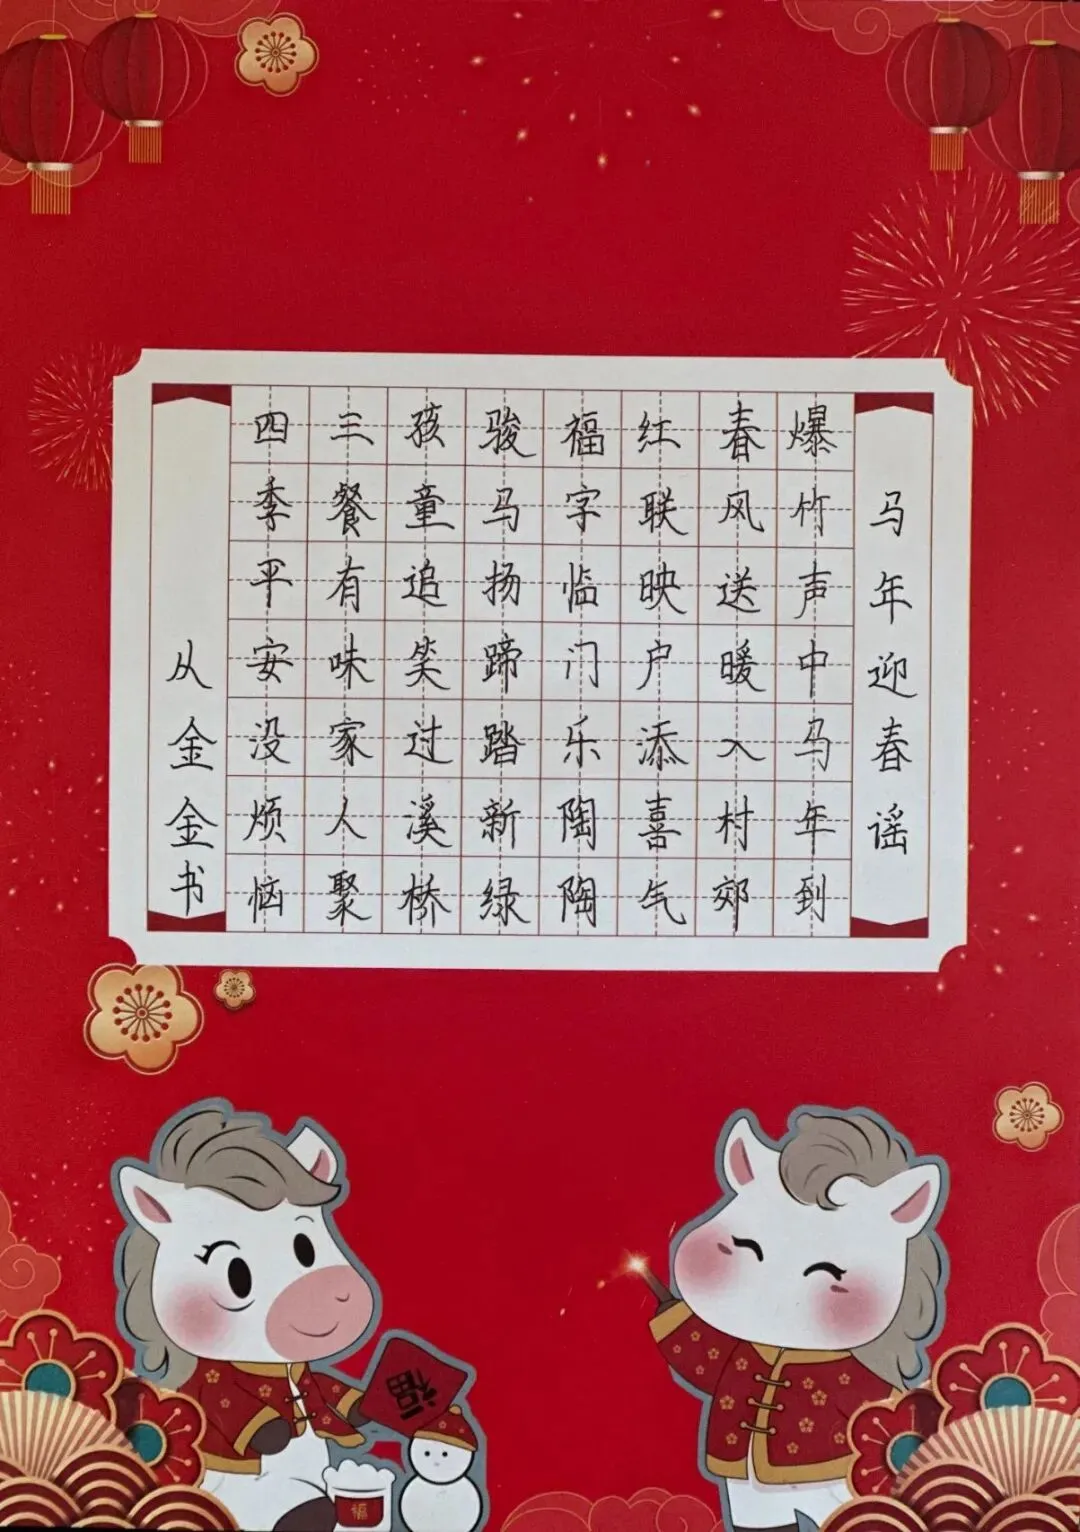 马年迎春谣
爆竹声中马年到
春风送暖入村郊
红联映户添喜气
福字临门乐陶陶
骏马扬蹄踏新绿
孩童追笑过溪桥
三餐有味家人聚
四季平安没烦恼
从金金书
福
福